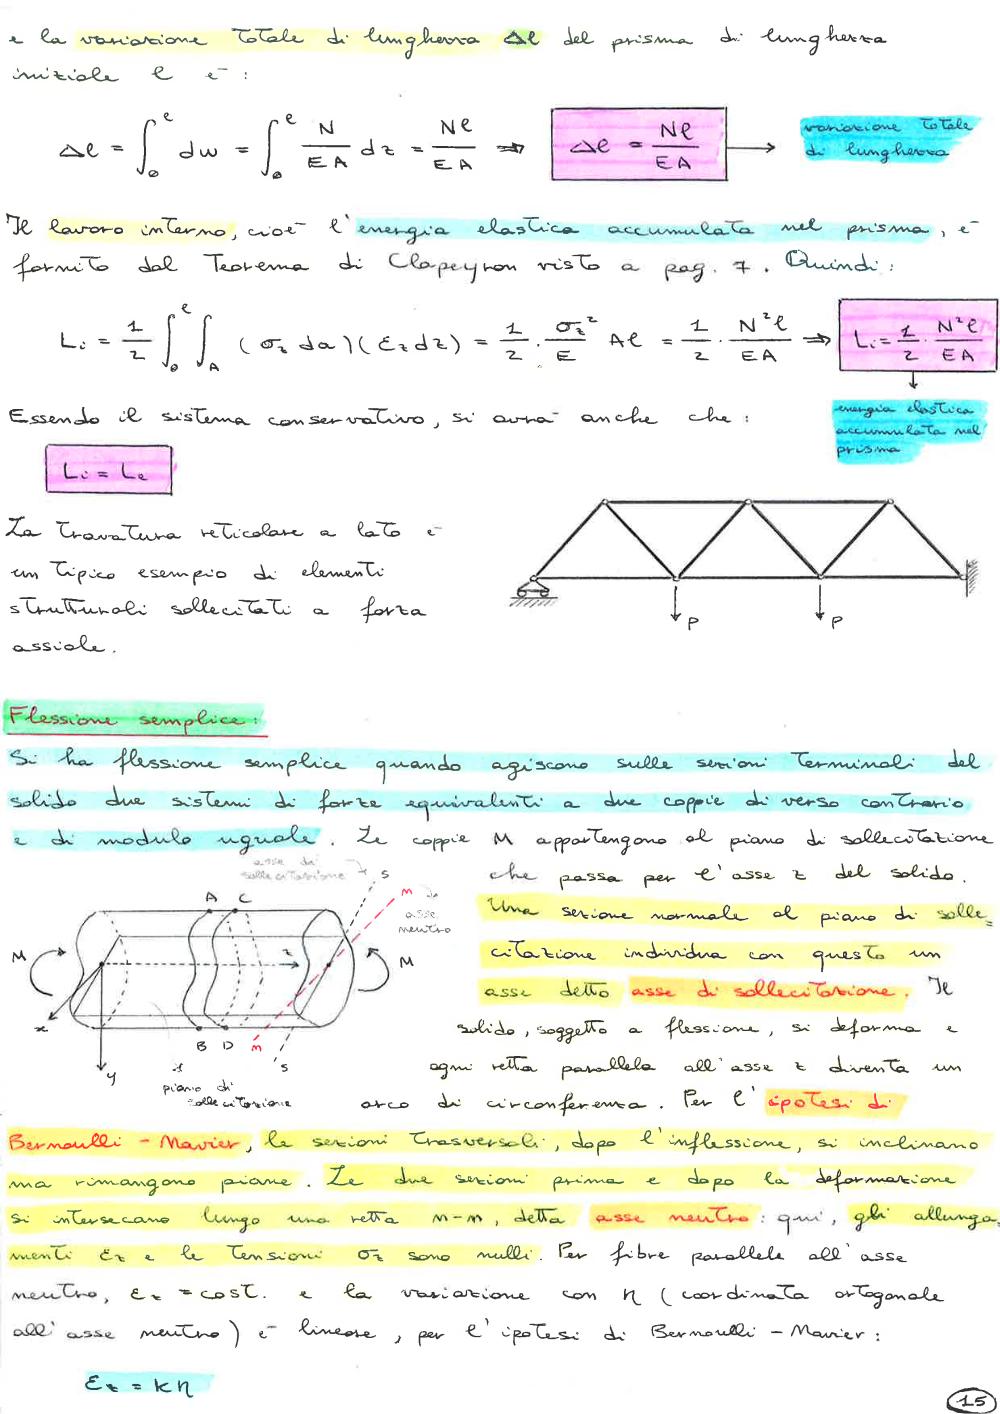 e la variazione totale di lunghezza Δl del prisma di lunghezza
iniziale l è:
Δl = ∫₀ˡ dw = ∫₀ˡ N/EA dz = Nl/EA ⇒ Δl = Nl/EA → variazione totale
di lunghezza
Il lavoro interno, cioè l'energia elastica accumulata nel prisma, è
fornito dal Teorema di Clapeyron visto a pag. 7. Quindi:
Li = 1/2 ∫₀ˡ ∫_A (σz da)(εz dz) = 1/2 · σz²/E Al = 1/2 · N²l/EA ⇒ Li = 1/2 · N²l/EA
Essendo il sistema conservativo, si avrà anche che:
energia elastica
accumulata nel
prisma
Li = Le
La travatura reticolare a lato è
un tipico esempio di elementi
strutturali sollecitati a forza
assiale.
P
P
Flessione semplice:
Si ha flessione semplice quando agiscono sulle sezioni terminali del
solido due sistemi di forze equivalenti a due coppie di verso contrario
e di modulo uguale. Le coppie M appartengono al piano di sollecitazione
che passa per l'asse z del solido.
Una sezione normale al piano di solle=
citazione individua con questo un
asse detto asse di sollecitazione. Il
solido, soggetto a flessione, si deforma e
ogni retta parallela all'asse z diventa un
arco di circonferenza. Per l'ipotesi di
asse di
sollecitazione
s
n
asse
neutro
A C
M
z
M
x
B D
n
s
y
piano di
sollecitazione
Bernoulli - Navier, le sezioni trasversali, dopo l'inflessione, si inclinano
ma rimangono piane. Le due sezioni prima e dopo la deformazione
si intersecano lungo una retta n-n, detta asse neutro: qui, gli allunga=
menti εz e le tensioni σz sono nulli. Per fibre parallele all'asse
neutro, εz = cost. e la variazione con η (coordinata ortogonale
all'asse neutro) è lineare, per l'ipotesi di Bernoulli - Navier:
εz = kη
15